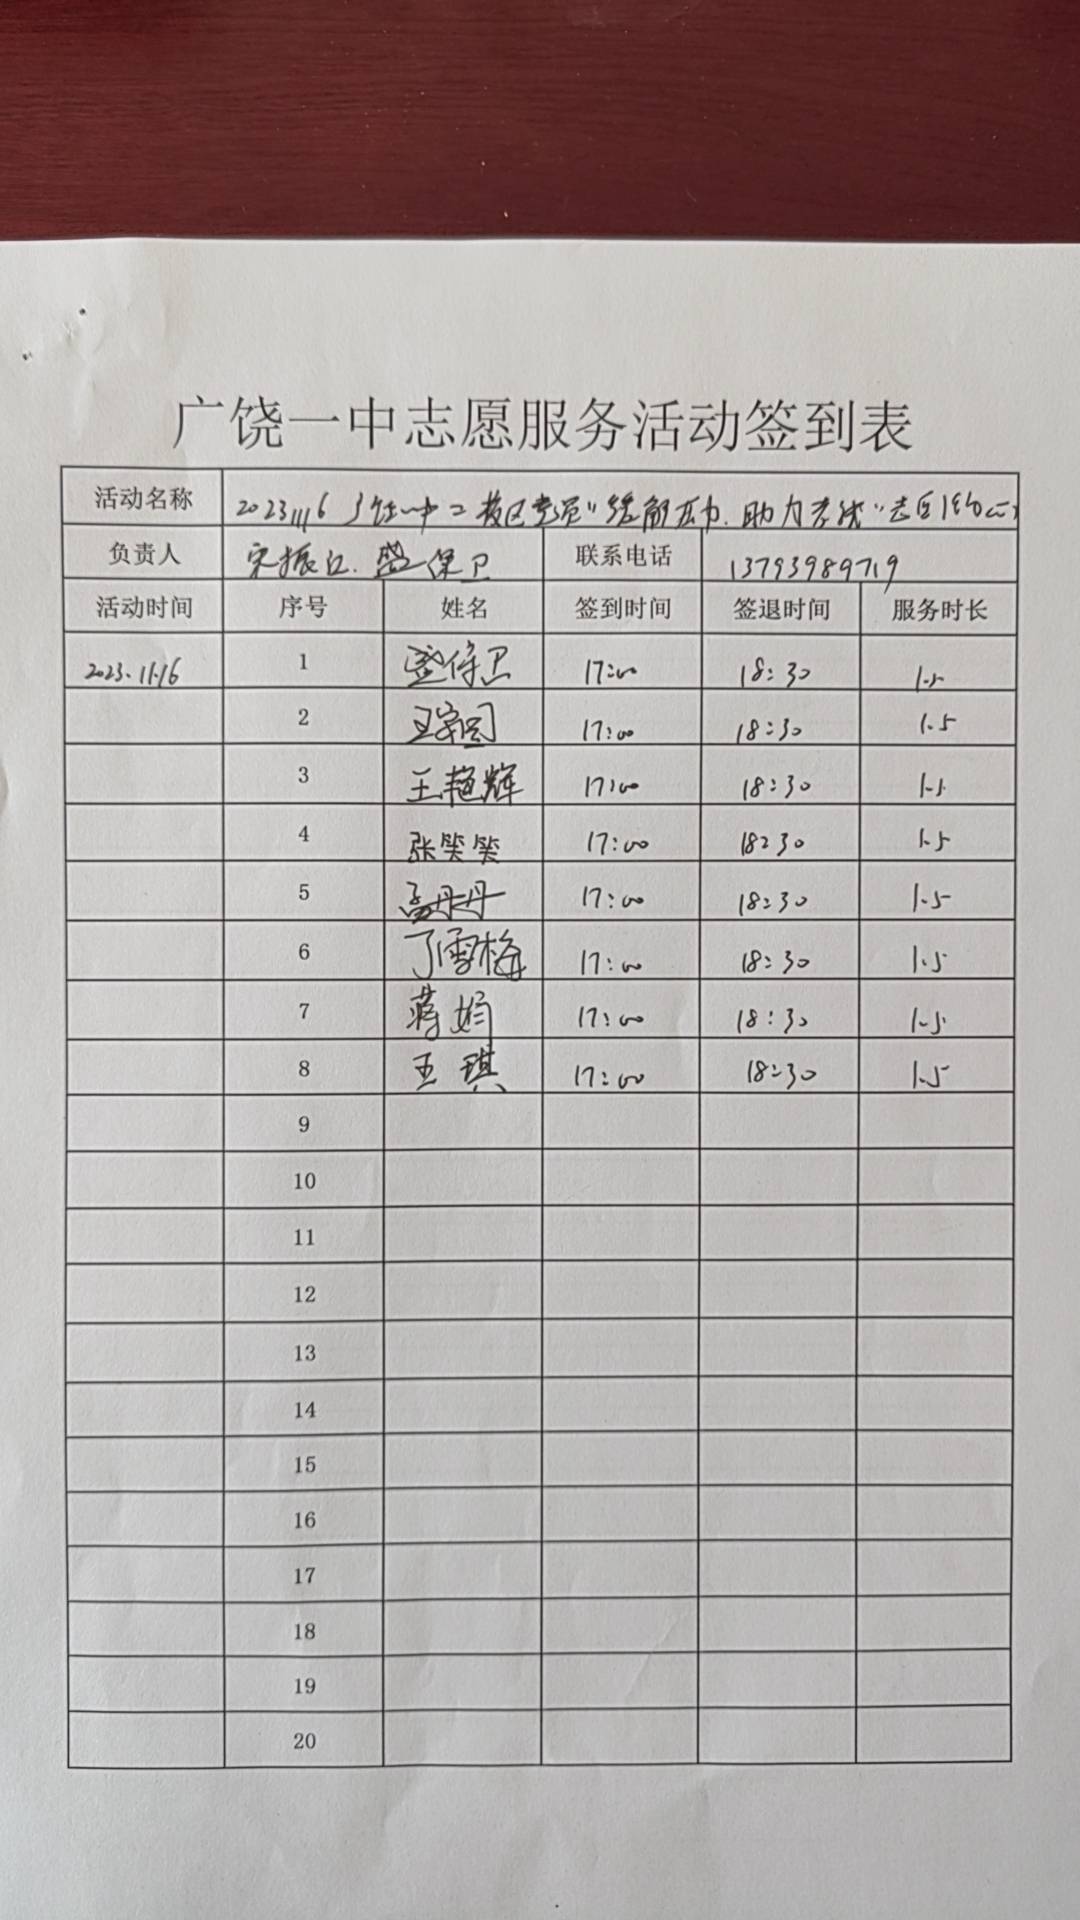 广饶一中志愿服务活动签到表
活动名称 20231116 广饶一中二校区党员"缓解压力.助力考试"志愿
负责人 宋振 盛保卫 联系电话 13793989719
活动时间 序号 姓名 签到时间 签退时间 服务时长
2023.11.16 1 盛保卫 17:00 18:30 1.5
2 17:00 18:30 1.5
3 王艳辉 17:00 18:30 1.5
4 张笑笑 17:00 18:30 1.5
5 孟丹丹 17:00 18:30 1.5
6 丁雪梅 17:00 18:30 1.5
7 蒋娟 17:00 18:30 1.5
8 王琪 17:00 18:30 1.5
9
10
11
12
13
14
15
16
17
18
19
20